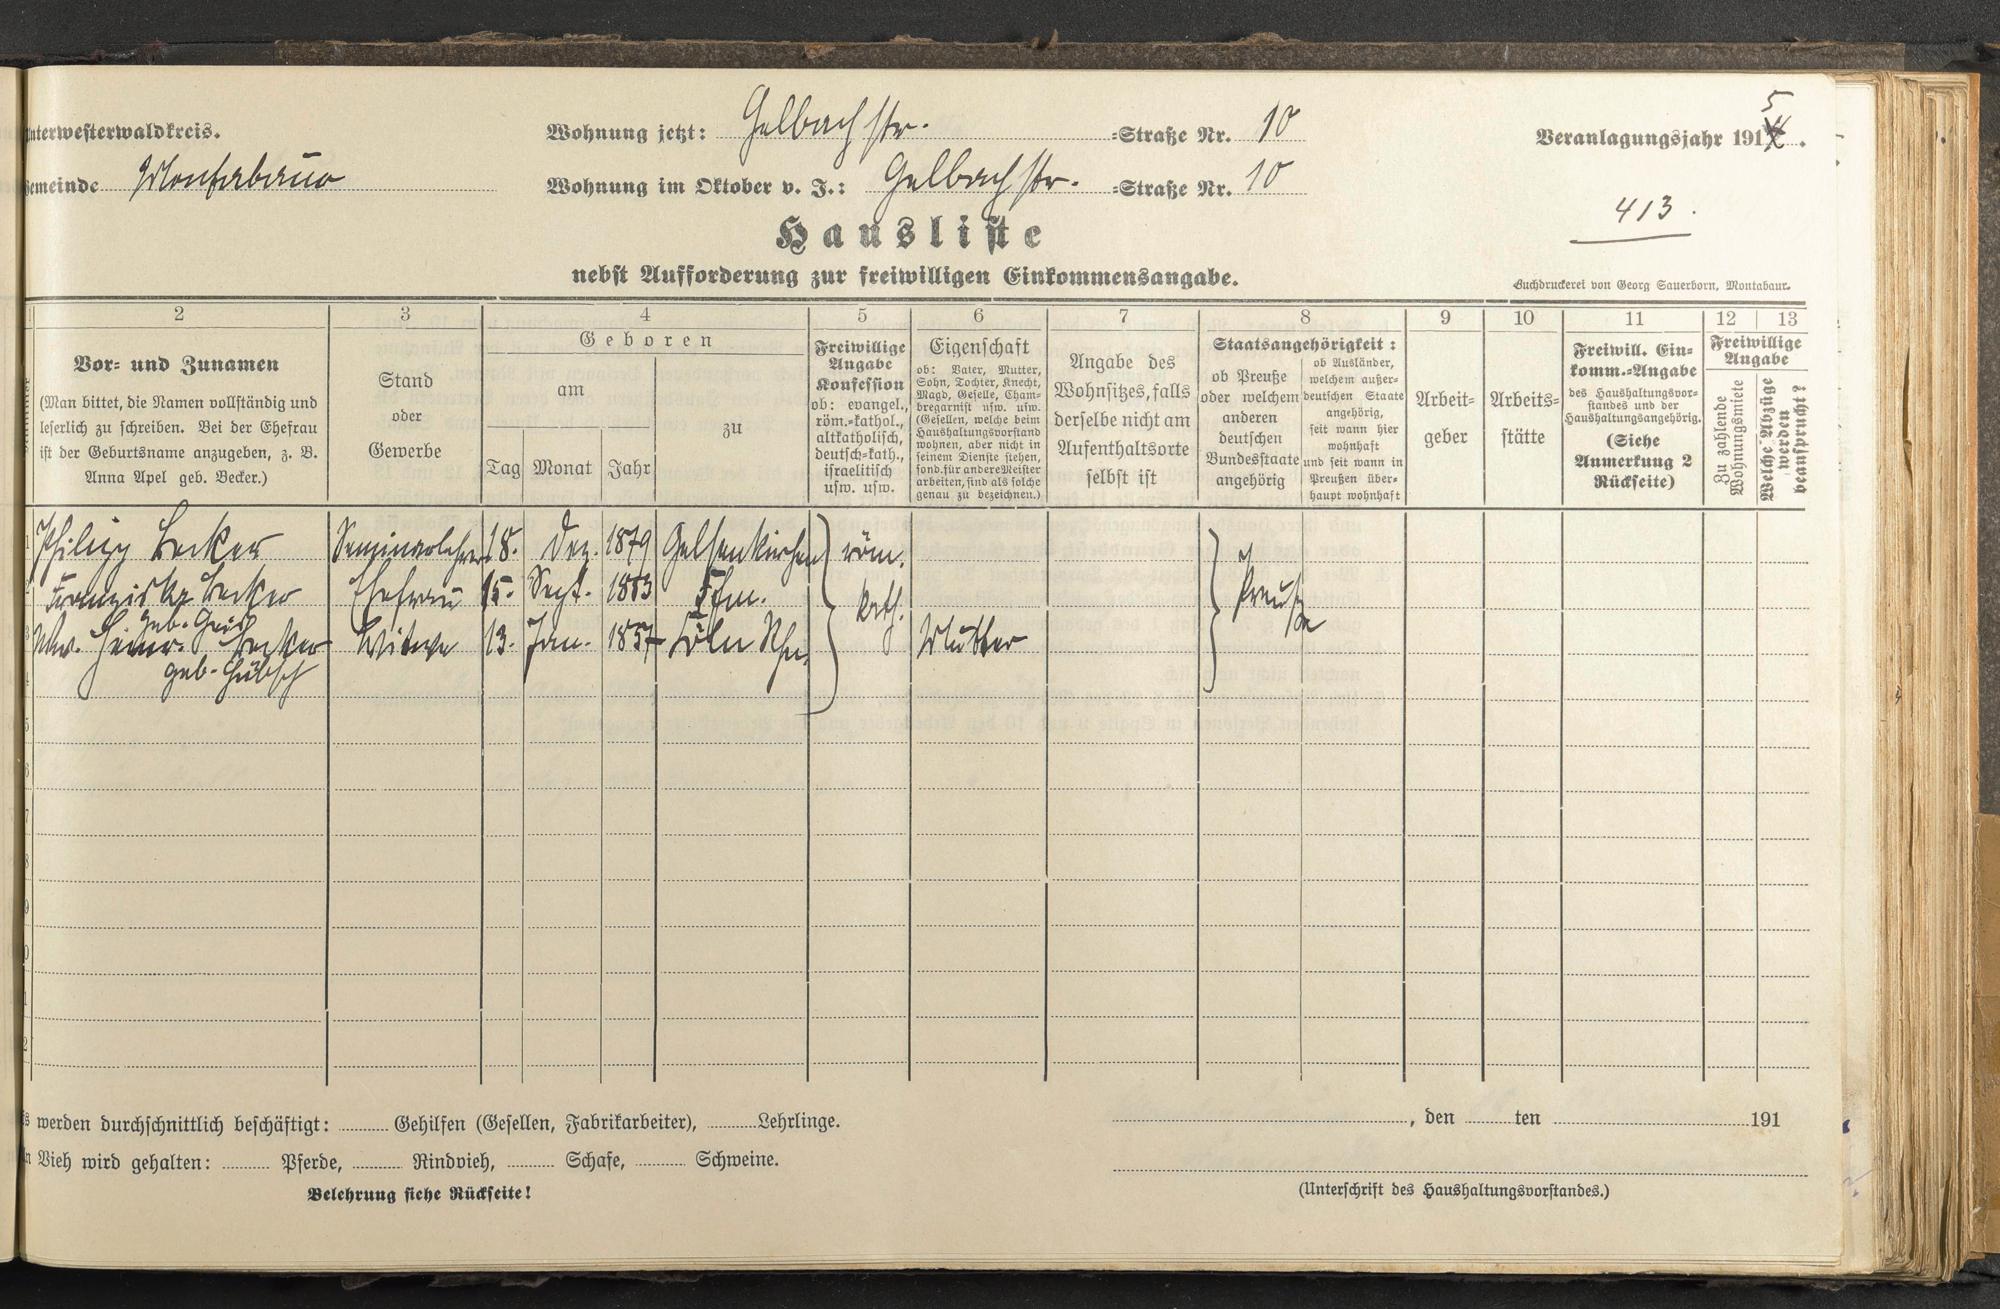 Unterwesterwaldkreis.
Gemeinde Montabaur
Wohnung jetzt: Gelbachstr. =Straße Nr. 10
Wohnung im Oktober v. J.: Gelbachstr. =Straße Nr. 10
Veranlagungsjahr 1915.
413.
Hausliste
nebst Aufforderung zur freiwilligen Einkommensangabe.
Buchdruckerei von Georg Sauerborn, Montabaur.
2 3 4 5 6 7 8 9 10 11 12 13
Vor- und Zunamen
(Man bittet, die Namen vollständig und
leserlich zu schreiben. Bei der Ehefrau
ist der Geburtsname anzugeben, z. B.
Anna Apel geb. Becker.)
Stand
oder
Gewerbe
Geboren
am
Tag Monat Jahr
zu
Freiwillige
Angabe
Konfession
ob: evangel.,
röm.=kathol.,
altkatholisch,
deutsch=kath.,
israelitisch
usw. usw.
Eigenschaft
ob: Vater, Mutter,
Sohn, Tochter, Knecht,
Magd, Geselle, Cham=
bregarnist usw. usw.
(Gesellen, welche beim
Haushaltungsvorstand
wohnen, aber nicht in
seinem Dienste stehen,
sond. für andere Meister
arbeiten, sind als solche
genau zu bezeichnen.)
Angabe des
Wohnsitzes, falls
derselbe nicht am
Aufenthaltsorte
selbst ist
Staatsangehörigkeit:
ob Preuße
oder welchem
anderen
deutschen
Bundesstaate
angehörig
ob Ausländer,
welchem außer=
deutschen Staate
angehörig,
seit wann hier
wohnhaft
und seit wann in
Preußen über=
haupt wohnhaft
Arbeit=
geber
Arbeits=
stätte
Freiwill. Ein=
komm.=Angabe
des Haushaltungsvor=
standes und der
Haushaltungsangehörig.
(Siehe
Anmerkung 2
Rückseite)
Freiwillige
Angabe
Zu zahlende
Wohnungsmiete
Welche Abzüge
werden
beansprucht?
1 Philipp Becker Seminarlehrer 18. Dez. 1879 Gelsenkirchen röm.
2 Franziska Becker Ehefrau 15. Sept. 1883 Ffm. kath. Preuße
geb. Geis
3 Ww. Heinr. Becker Witwe 13. Jan. 1857 Cöln Rhn. Mutter
geb. Hübsch
4
5
6
7
8
9
0
1
2
werden durchschnittlich beschäftigt: Gehilfen (Gesellen, Fabrikarbeiter), Lehrlinge.
Vieh wird gehalten: Pferde, Rindvieh, Schafe, Schweine.
Belehrung siehe Rückseite!
, den ten 191
(Unterschrift des Haushaltungsvorstandes.)